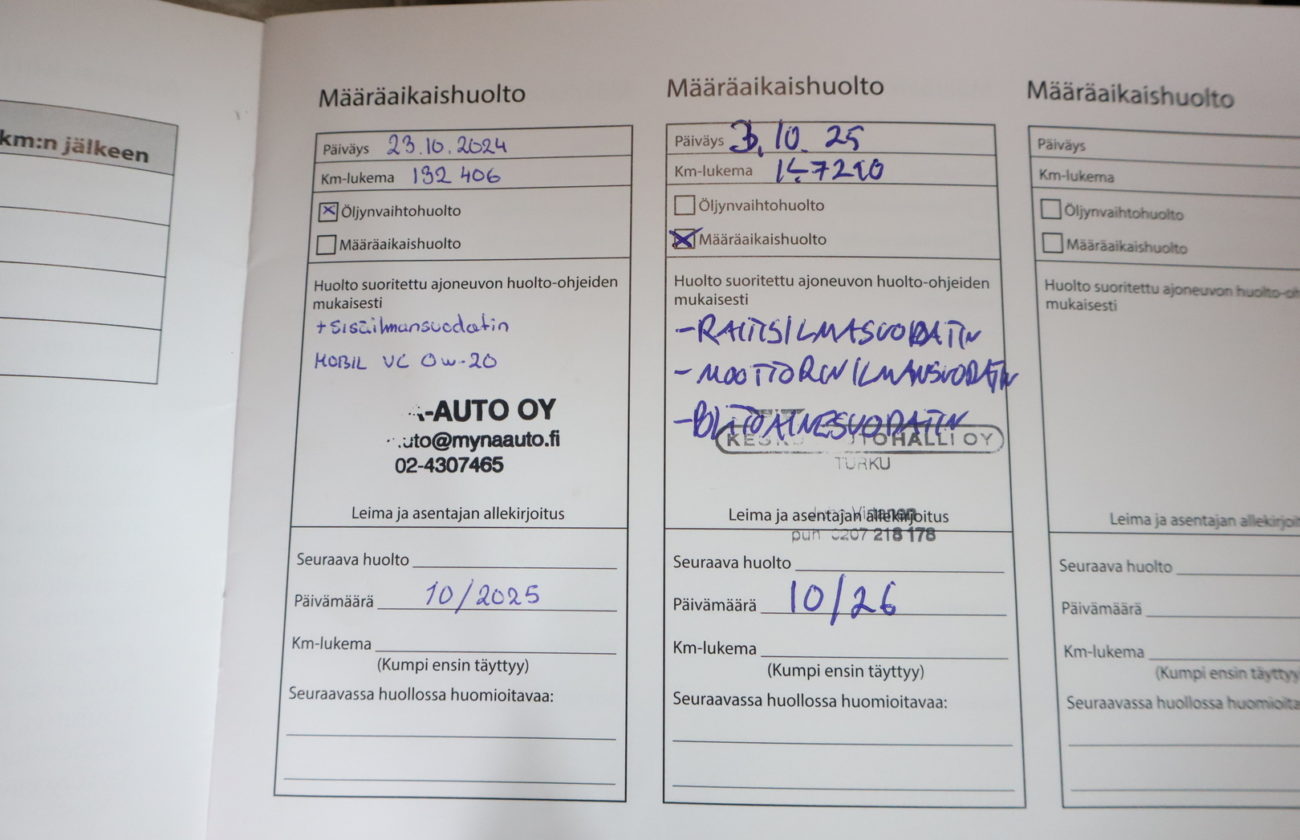 km:n jälkeen
Määräaikaishuolto
Päiväys 23.10.2024
Km-lukema 132 406
Öljynvaihtohuolto
Määräaikaishuolto
Huolto suoritettu ajoneuvon huolto-ohjeiden
mukaisesti
+ sisäilmansuodatin
MOBIL VC 0w-20
-AUTO OY
uto@mynaauto.fi
02-4307465
Leima ja asentajan allekirjoitus
Seuraava huolto
Päivämäärä 10/2025
Km-lukema
(Kumpi ensin täyttyy)
Seuraavassa huollossa huomioitavaa:
Määräaikaishuolto
Päiväys 3.10.25
Km-lukema
Öljynvaihtohuolto
Määräaikaishuolto
Huolto suoritettu ajoneuvon huolto-ohjeiden
mukaisesti
- RAITISILMASUODATIN
- MOOTTORIN ILMANSUODATIN
- POLTTOAINESUODATIN
OHALLI OY
TURKU
Leima ja asentajan allekirjoitus
puh 0207 218 178
Seuraava huolto
Päivämäärä 10/26
Km-lukema
(Kumpi ensin täyttyy)
Seuraavassa huollossa huomioitavaa:
Määräaikaishuolto
Päiväys
Km-lukema
Öljynvaihtohuolto
Määräaikaishuolto
Huolto suoritettu ajoneuvon huolto-oh
mukaisesti
Leima ja asentajan allekirjoit
Seuraava huolto
Päivämäärä
Km-lukema
(Kumpi ensin täyttyy
Seuraavassa huollossa huomioita